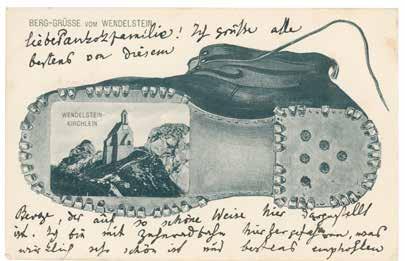 BERG-GRÜSSE VOM WENDELSTEIN
liebe Familie! Ich grüße alle
bestens von diesem
WENDELSTEIN-
KIRCHLEIN
Berge, der auf so schöne Weise hier dargestellt
ist. Ich bin mit Zahnradbahn hierhergefahren, was
wirklich sehr schön ist und bestens empfohlen